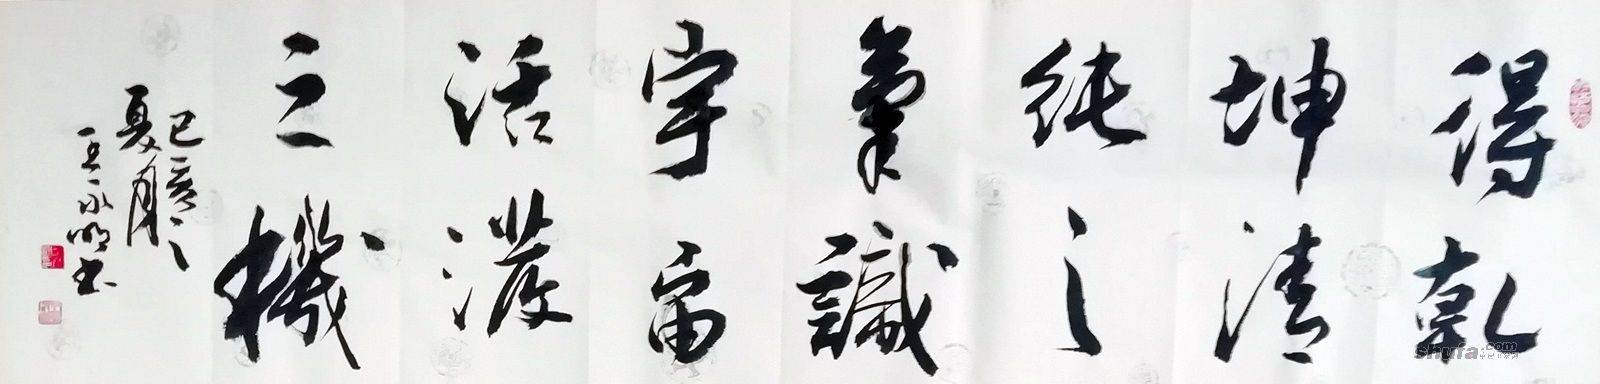 得乾
坤清
純之
氣識
宇宙
活潑
之機
己亥之
夏月
王永明书
shufa.com